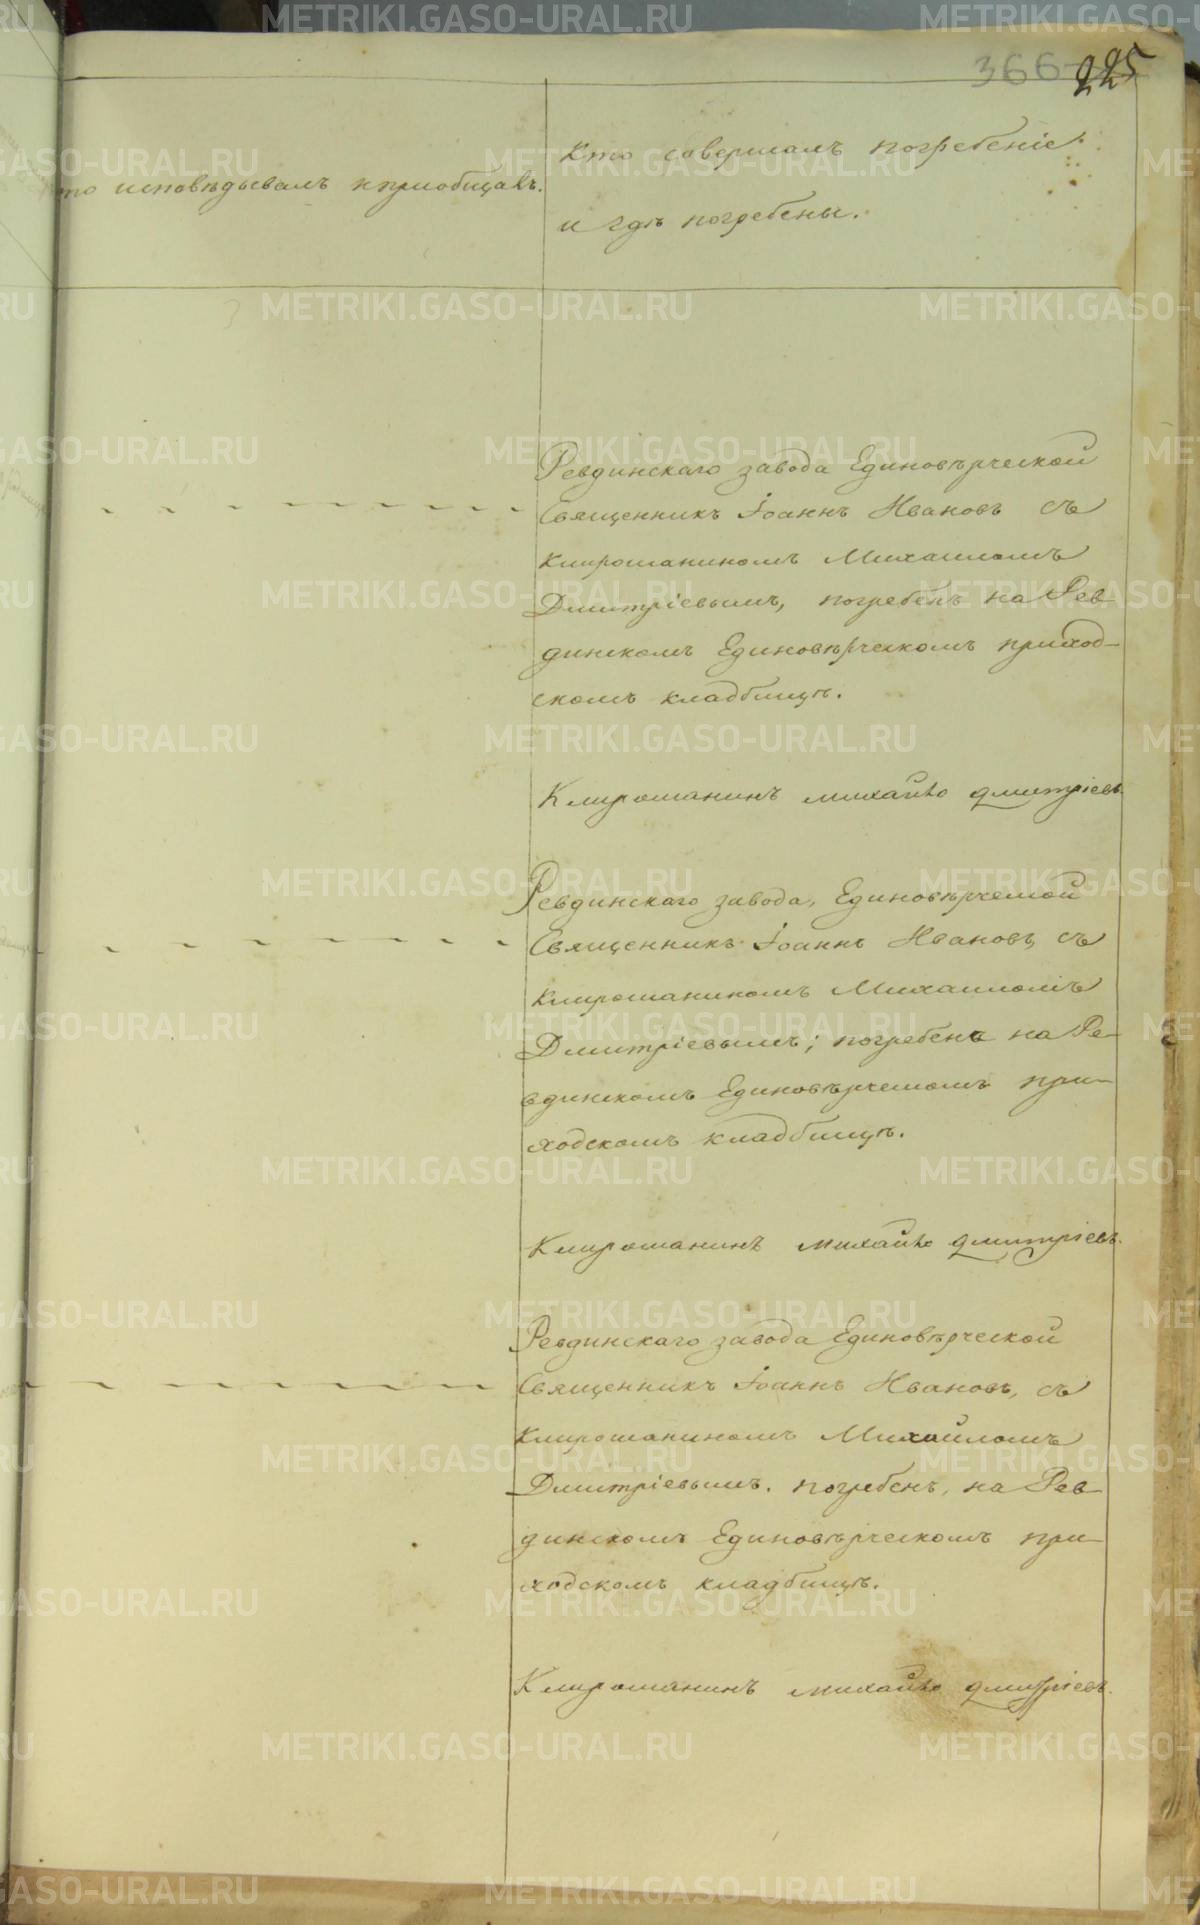 366
225
то исповѣдывалъ и приобщалъ.
Кто совершалъ погребеніе
и гдѣ погребены.
Ревдинскаго завода Единовѣрческой
Священникъ Іоаннъ Ивановъ съ
клирошаниномъ Михаиломъ
Дмитріевымъ, погребенъ на Рев-
динскомъ Единовѣрческомъ приход-
скомъ кладбищѣ.
Клирошанинъ михайло дмитріевъ.
Ревдинскаго завода, Единовѣрческой
Священникъ Іоаннъ Ивановъ, съ
клирошаниномъ Михаиломъ
Дмитріевымъ; погребенъ на Ре-
вдинскомъ Единовѣрческомъ при-
ходскомъ кладбищѣ.
Клирошанинъ михайло дмитріевъ.
Ревдинскаго завода Единовѣрческой
Священникъ Іоаннъ Ивановъ, съ
клирошаниномъ Михайломъ
Дмитріевымъ. погребенъ, на Рев-
динскомъ Единовѣрческомъ при-
ходскомъ кладбищѣ.
Клирошанинъ михайло дмитріевъ.
METRIKI.GASO-URAL.RU